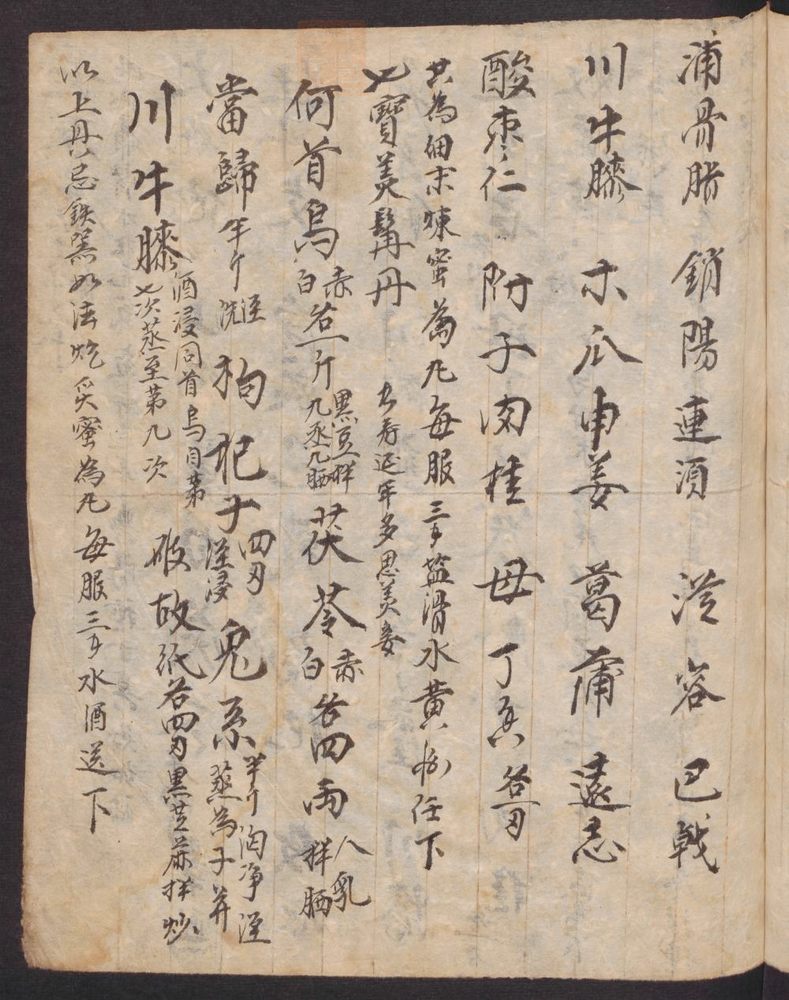 浦骨脂 鎖陽 連須 蓯容 巴戟
川牛膝 木瓜 申姜 葛蒲 遠志
酸枣仁 附子 肉桂 母丁 各一刄
共為細末煉蜜為九每服三 塩滑水黄 任下
七寶美髯丹 長寿延年多思美妾
何首烏 赤白各一斤 黑豆拌九蒸九晒 茯苓 赤白各四兩 人乳拌晒
當歸 半斤 洗 枸杞子 四刄 浸 兎糸 半斤 淘净 蒸為子并
川牛膝 酒浸同首烏自第七次蒸至第九次 破故紙 各四刄 黑芝麻拌炒
以上丹忌鉄器如法炮 蜜為九每服三 水酒送下